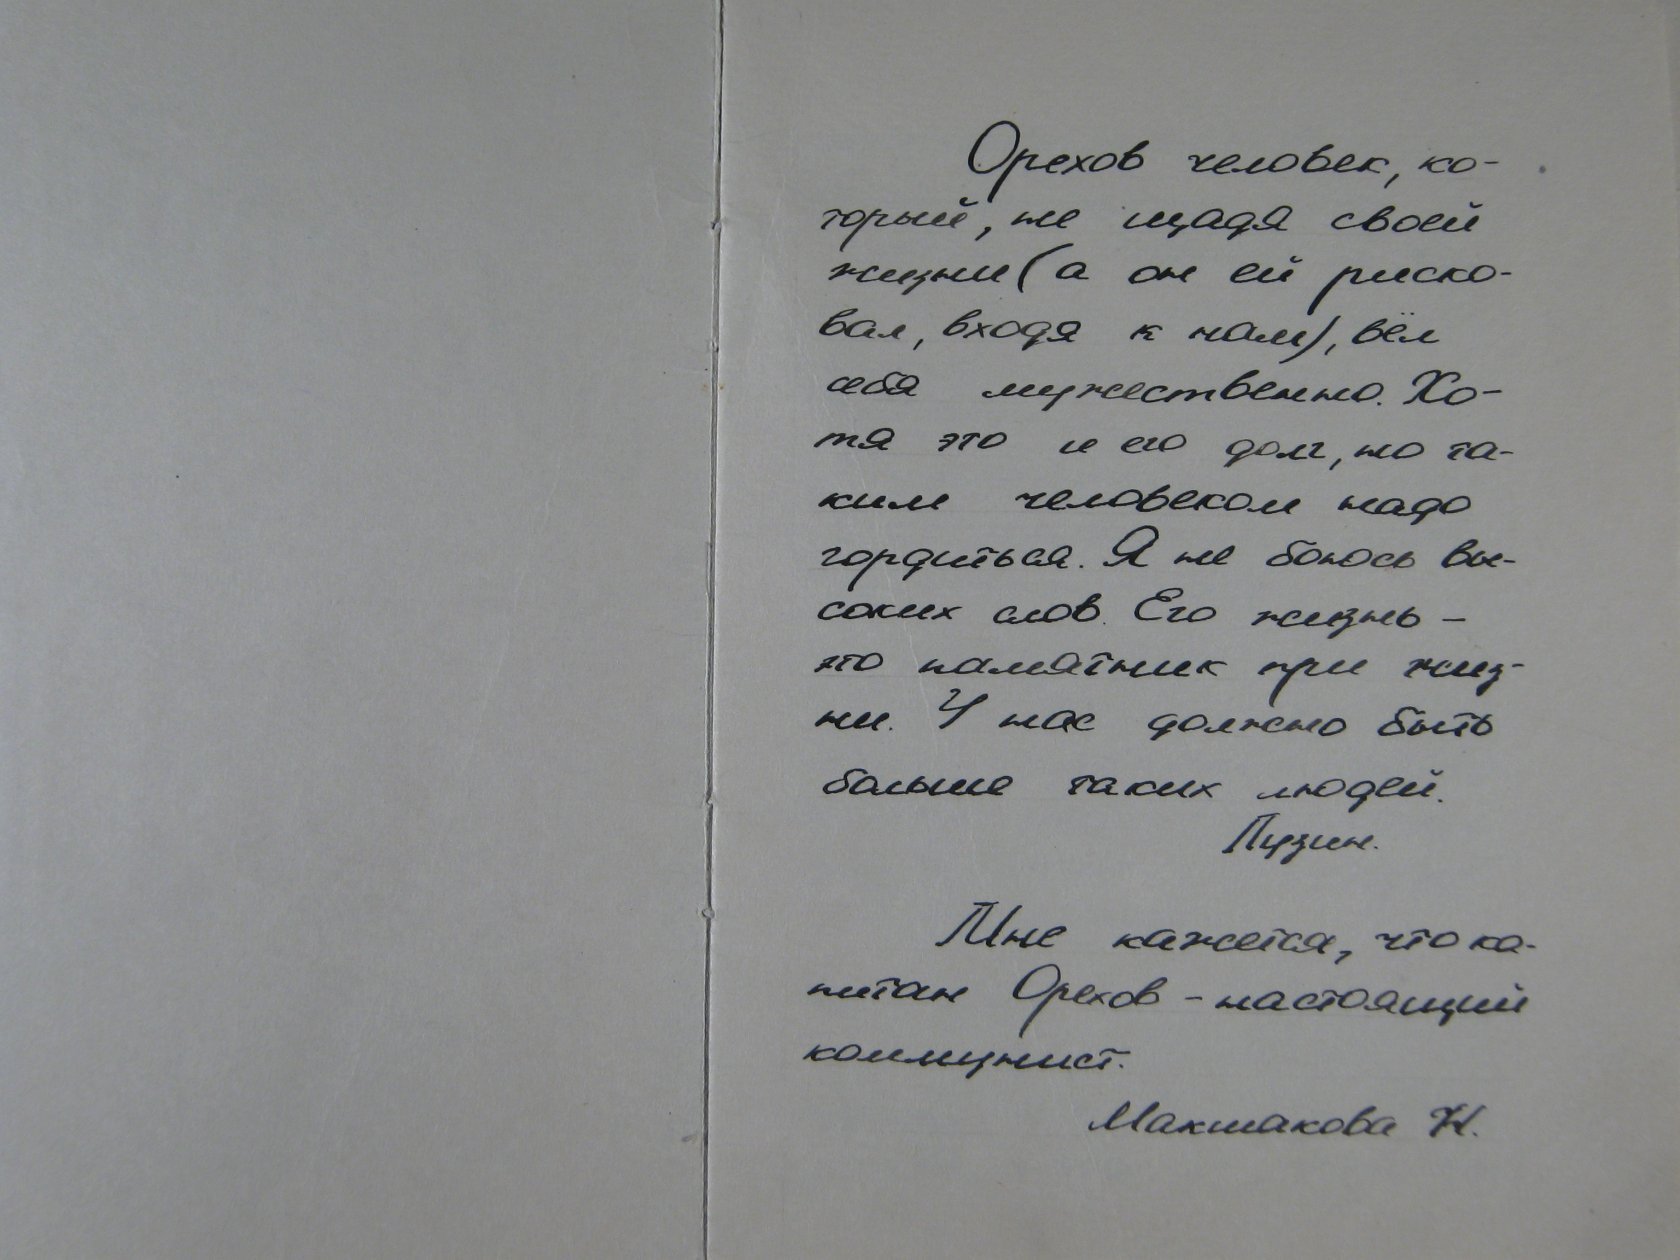 Орехов человек, ко-
торый, не щадя своей
жизни (а он ей риско-
вал, входя к нам), вёл
себя мужественно. Хо-
тя это и его долг, но та-
ким человеком надо
гордиться. Я не боюсь вы-
соких слов. Его жизнь –
это памятник при жиз-
ни. У нас должно быть
больше таких людей.
Пузин.
Мне кажется, что ка-
питан Орехов – настоящий
коммунист.
Макшакова Н.